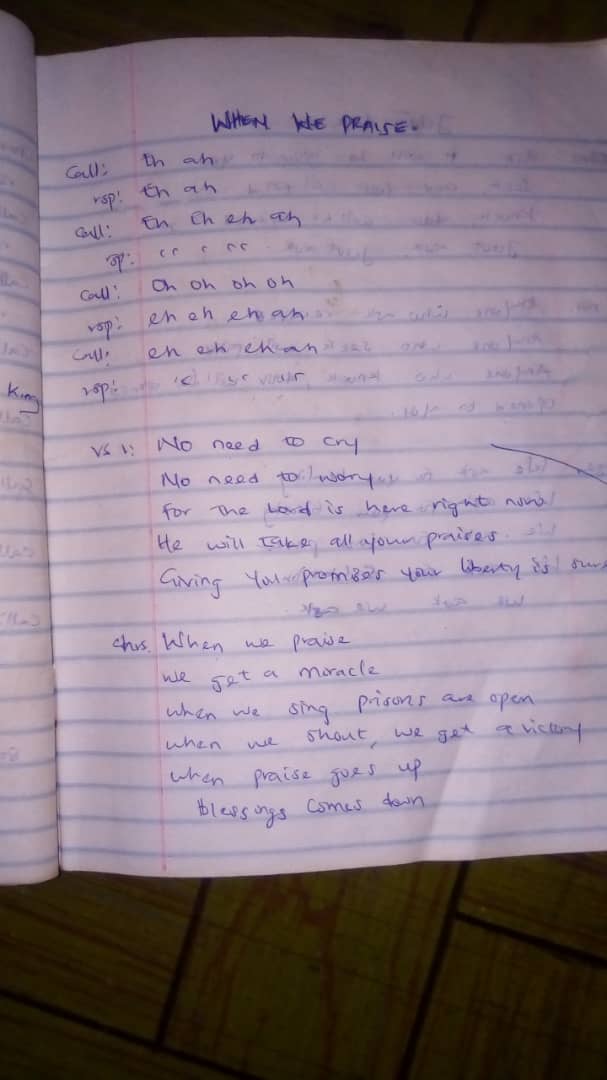 WHEN WE PRAISE.
Call: Eh ah
rsp: Eh ah
Call: Eh Eh eh ah
rsp: " " "
Call: Oh oh oh oh
rsp: eh eh eh ah
Call: eh eh eh ah
rsp:
King
VS 1: No need to cry
No need to worry
For the Lord is here right now
He will take all your praises
Giving You promises your liberty is sure
Chrs. When we praise
we get a miracle
when we sing prisons are open
when we shout, we get a victory
when praise goes up
blessings comes down